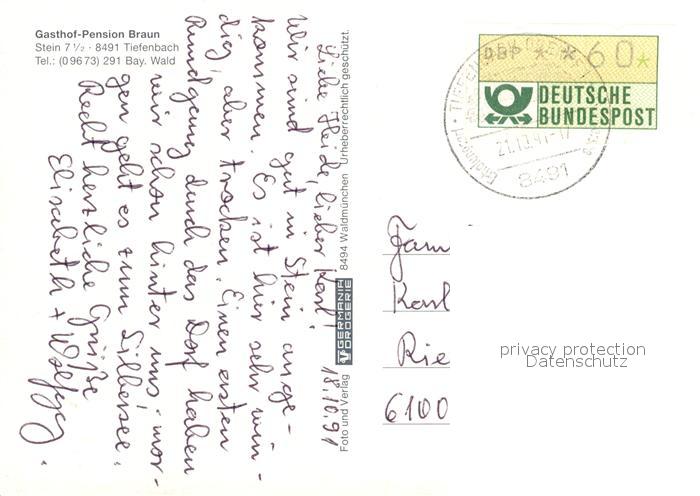 Gasthof-Pension Braun
Stein 7 ½ · 8491 Tiefenbach
Tel.: (0 96 73) 291 Bay. Wald
18.10.91
Liebe Heide, lieber Karl!
Wir sind gut in Stein ange-
kommen. Es ist hier sehr win-
dig, aber trocken. Einen ersten
Rundgang durch das Dorf haben
wir schon hinter uns; mor-
gen geht es zum Silbersee.
Recht herzliche Grüße
Elisabeth + Wolfgang.
Foto und Verlag GERMANIA DROGERIE 8494 Waldmünchen Urheberrechtlich geschützt.
DBP * * 60*
DEUTSCHE
BUNDESPOST
21.10.91-17
8491
Fam
Karl
Rie
6100
privacy protection
Datenschutz